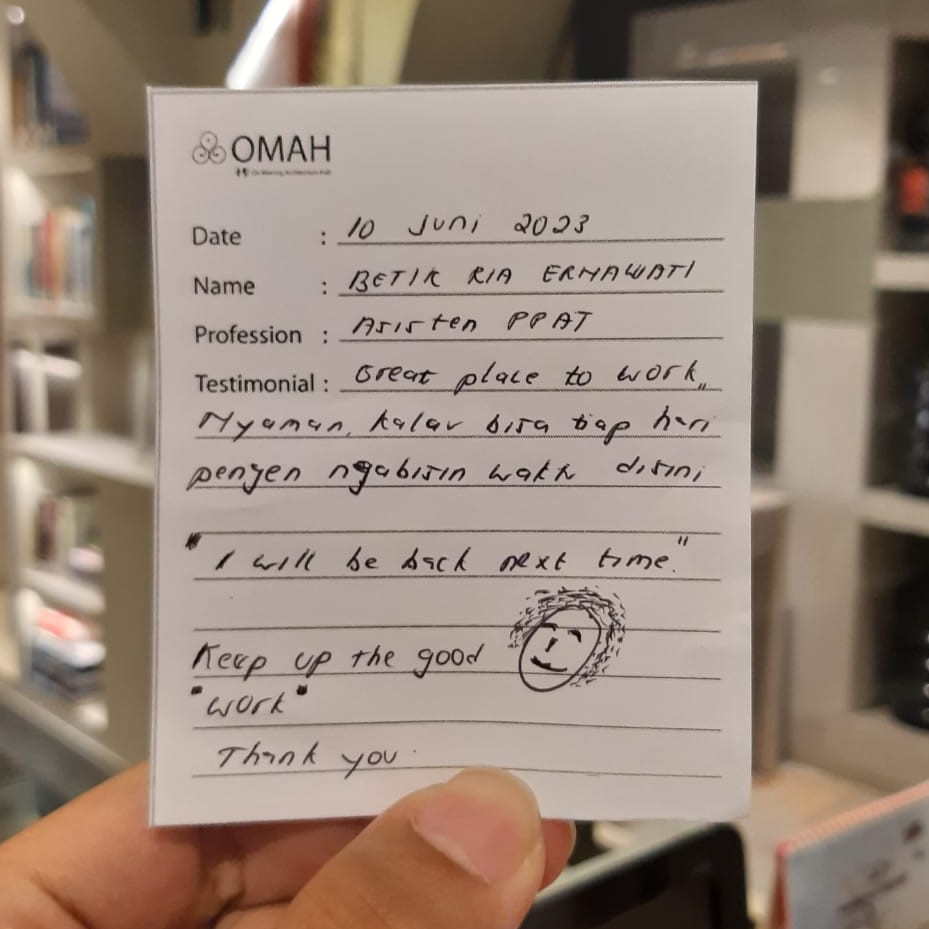 OMAH
Date : 10 Juni 2023
Name : BETIK RIA ERMAWATI
Profession : Asisten PPAT
Testimonial : Great place to work,,
Nyaman, kalau bisa tiap hari
pengen ngabisin waktu disini
"I will be back next time."
Keep up the good
"work"
Thank you.